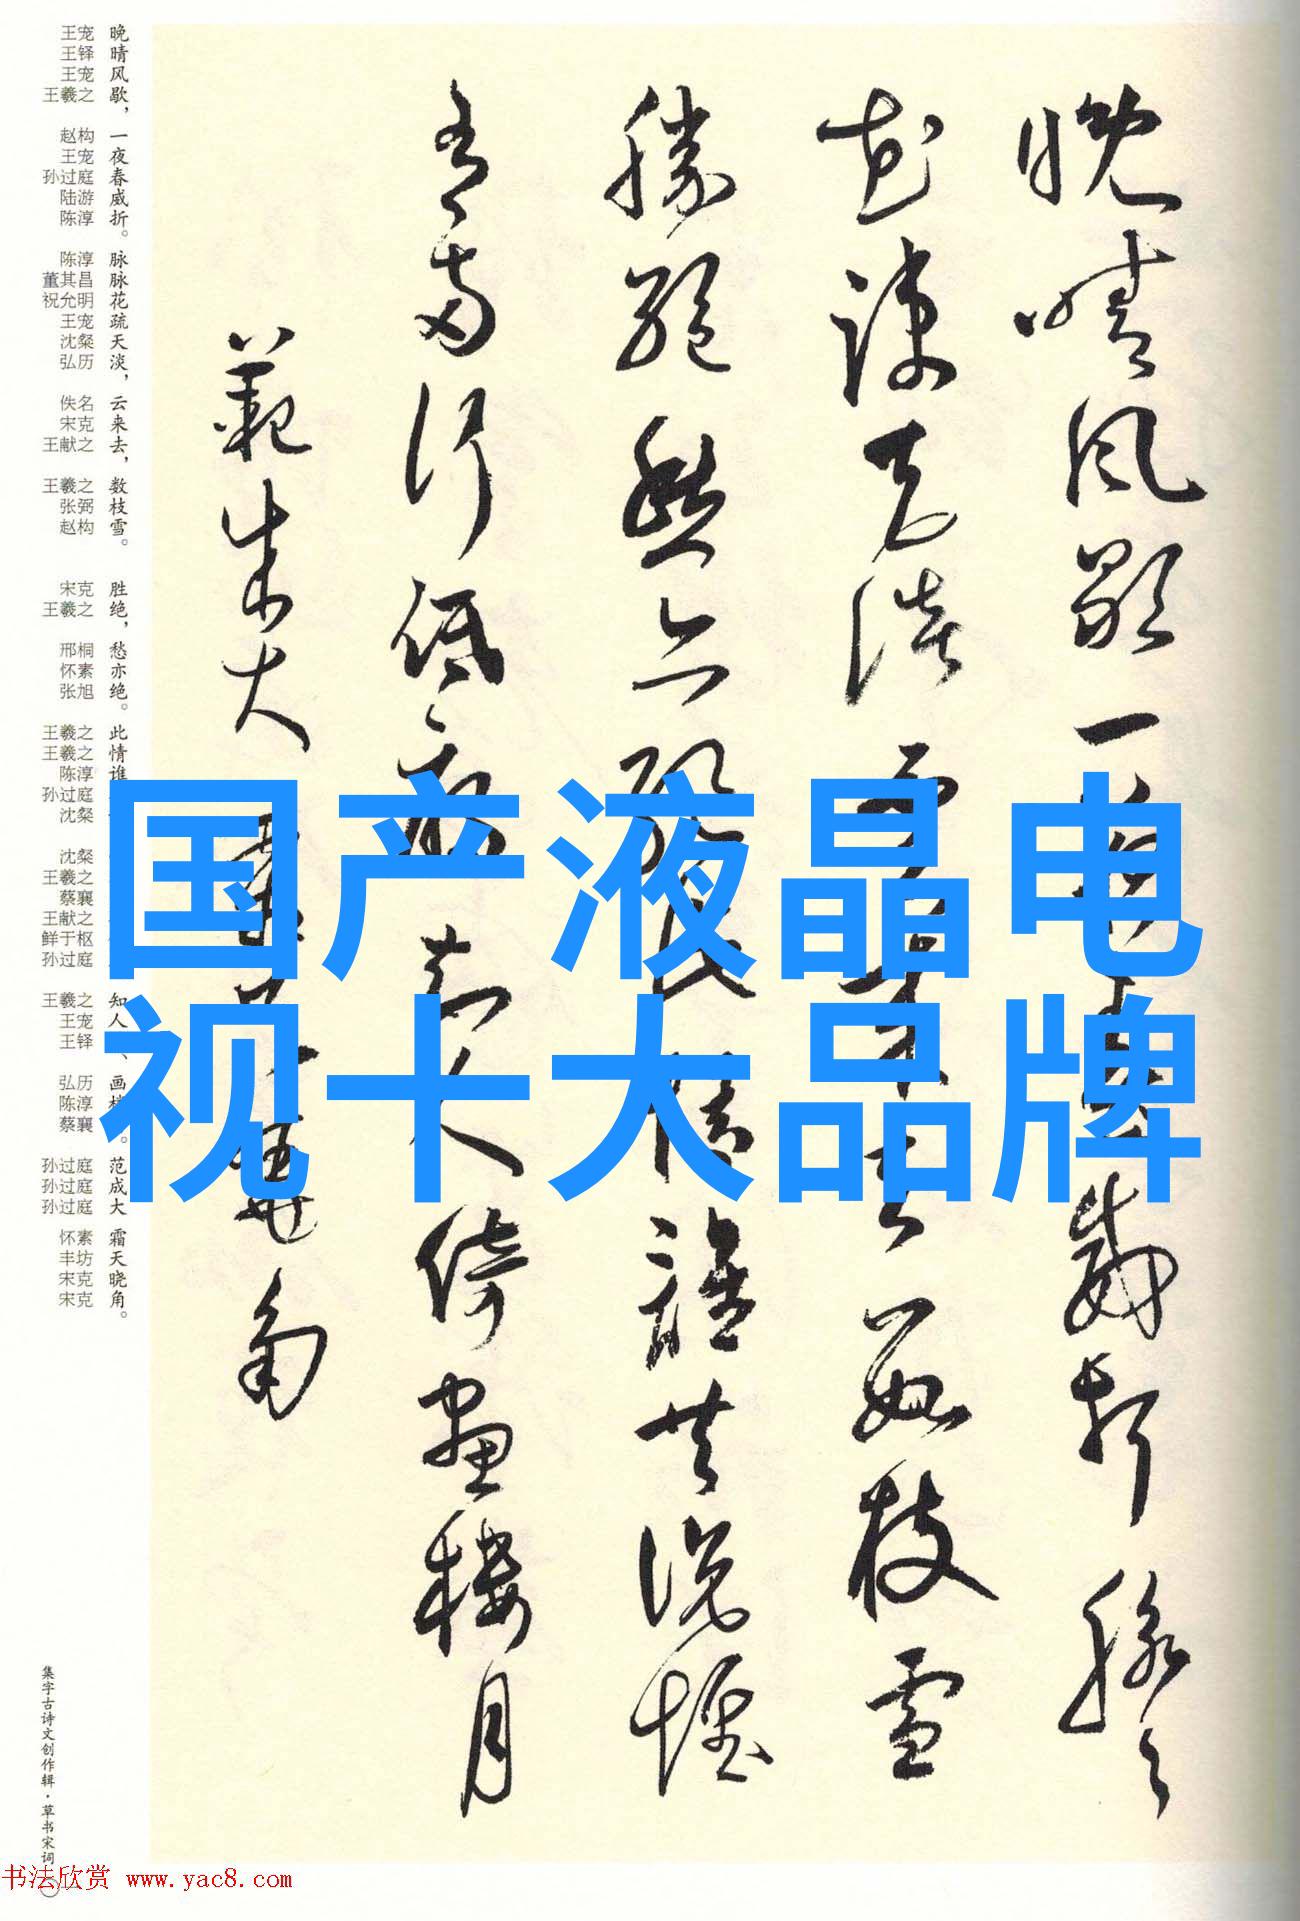 晚晴風歇一夜春威折脉々
花疏天淡雲來去數枝雪
勝絕愁亦絕此情誰共說惟
有兩行低雁知人倚畫樓月
範成大霜天曉角
国产液晶电
视十大品牌
晚晴风歇，一夜春威折。脉脉花疏天淡，云来去，数枝雪。胜绝，愁亦绝。此情谁 知人 、画 。范成大霜天晓角。
王宠 王铎 王宠 王羲之 赵构 王宠 孙过庭 陆游 陈淳 陈淳 董其昌 祝允明 王宠 沈粲 弘历 佚名 宋克 王献之 王羲之 张弼 赵构 宋克 王羲之 邢桐 怀素 张旭 王羲之 王羲之 陈淳 孙过庭 沈粲 沈粲 王羲之 蔡襄 王献之 鲜于枢 孙过庭 王羲之 王宠 王铎 弘历 陈淳 蔡襄 孙过庭 孙过庭 孙过庭 怀素 丰坊 宋克 宋克
集字古诗文创作辑·草书宋词
书法欣赏 www.yac8.com